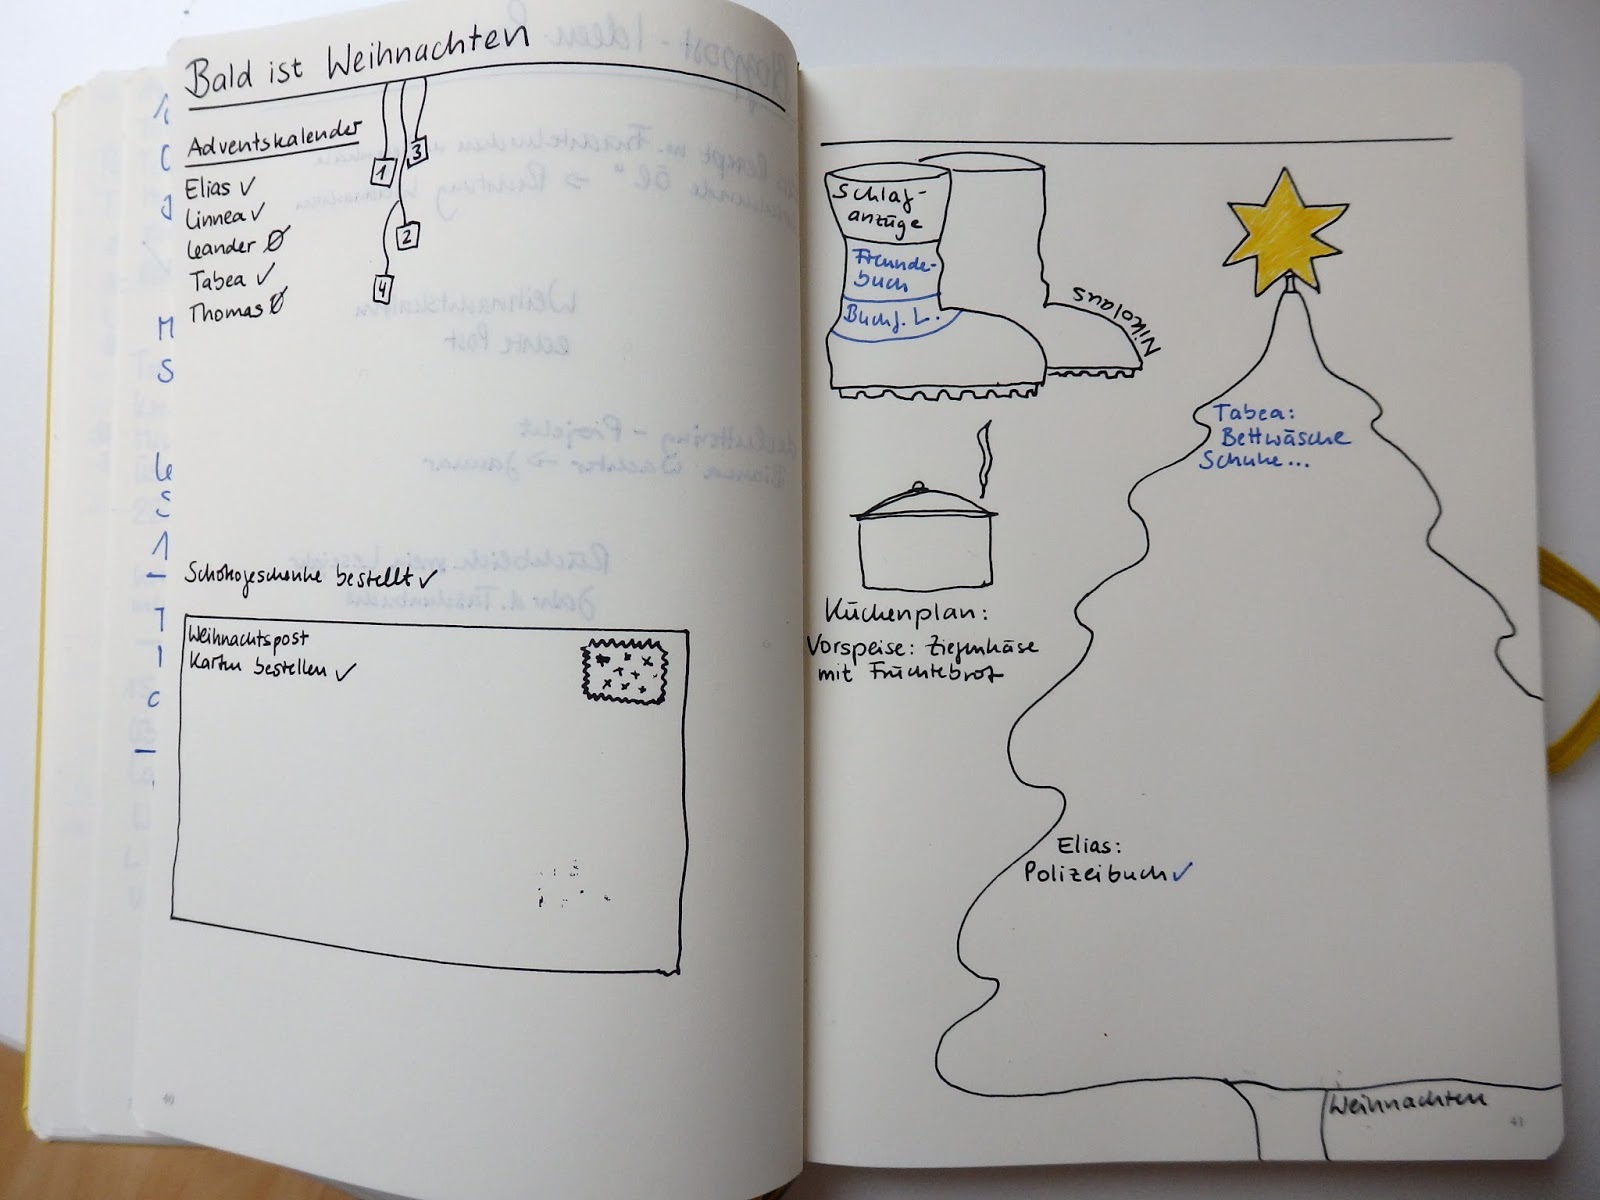 Bald ist Weihnachten
Adventskalender
Elias ✓
Linnea ✓
Leander Ø
Tabea ✓
Thomas Ø
1
3
2
4
Schokogeschenke bestellt ✓
Weihnachtspost
Karten bestellen ✓
40
Schlaf-
anzüge
Freunde-
buch
Buch f. L.
Nikolaus
Tabea:
Bettwäsche
Schuhe...
Küchenplan:
Vorspeise: Ziegenkäse
mit Früchtebrot
Elias:
Polizeibuch ✓
Weihnachten
41